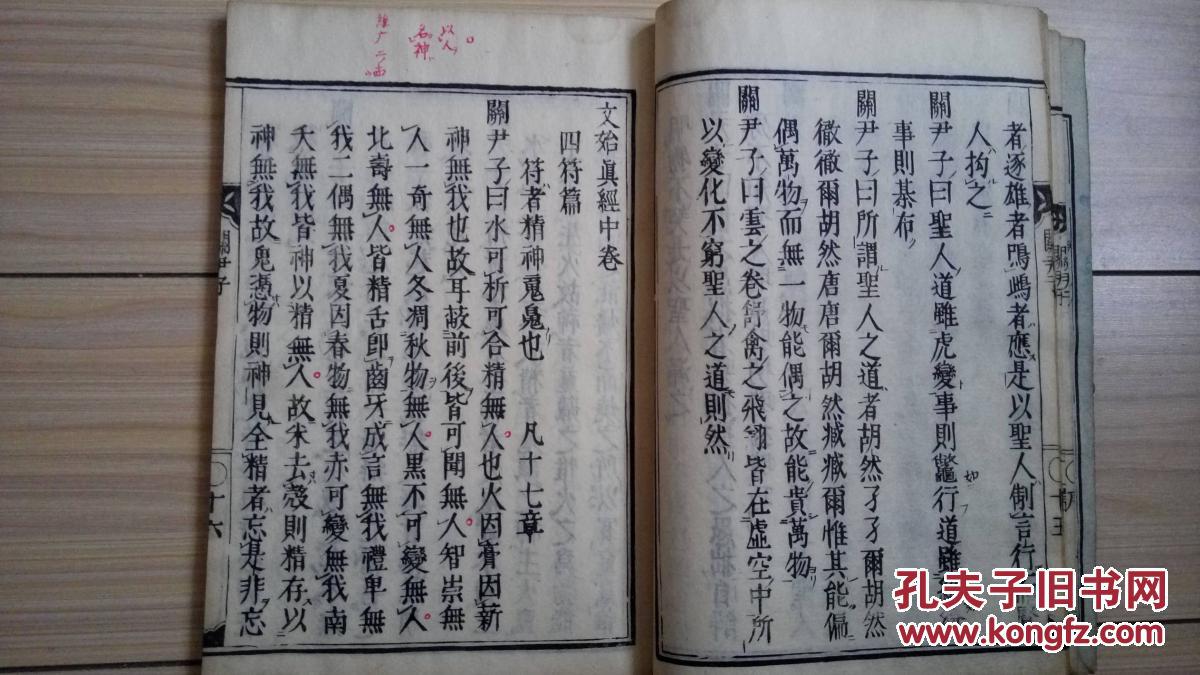 者逐雄者鴟鴟者應是以聖人制言行
人拘之
關尹子曰聖人道雖虎變事則鼈行道雖
事則棊布
關尹子曰所謂聖人之道者胡然孑孑爾胡然
徹徹爾胡然唐唐爾胡然臧臧爾惟其能徧
偶萬物而無一物能偶之故能貴萬物
關尹子曰雲之卷舒禽之飛翔皆在虛空中所
以變化不窮聖人之道則然
十五
關尹子
十六
文始眞經中卷
四符篇
符者精神䰟魄也 凡十七章
關尹子曰水可析可合精無人也火因膏因新
神無我也故耳蔽前後皆可聞無人智崇無
人一奇無人冬凋秋物無人黑不可變無人
北壽無人皆精舌卽齒牙成言無我禮卑無
我二偶無我夏因春物無我赤可變無我南
夭無我皆神以精無人故米去殼則精存以
神無我故鬼憑物則神見全精者忘是非忘
以人
名神
孔夫子旧书网
www.kongfz.com